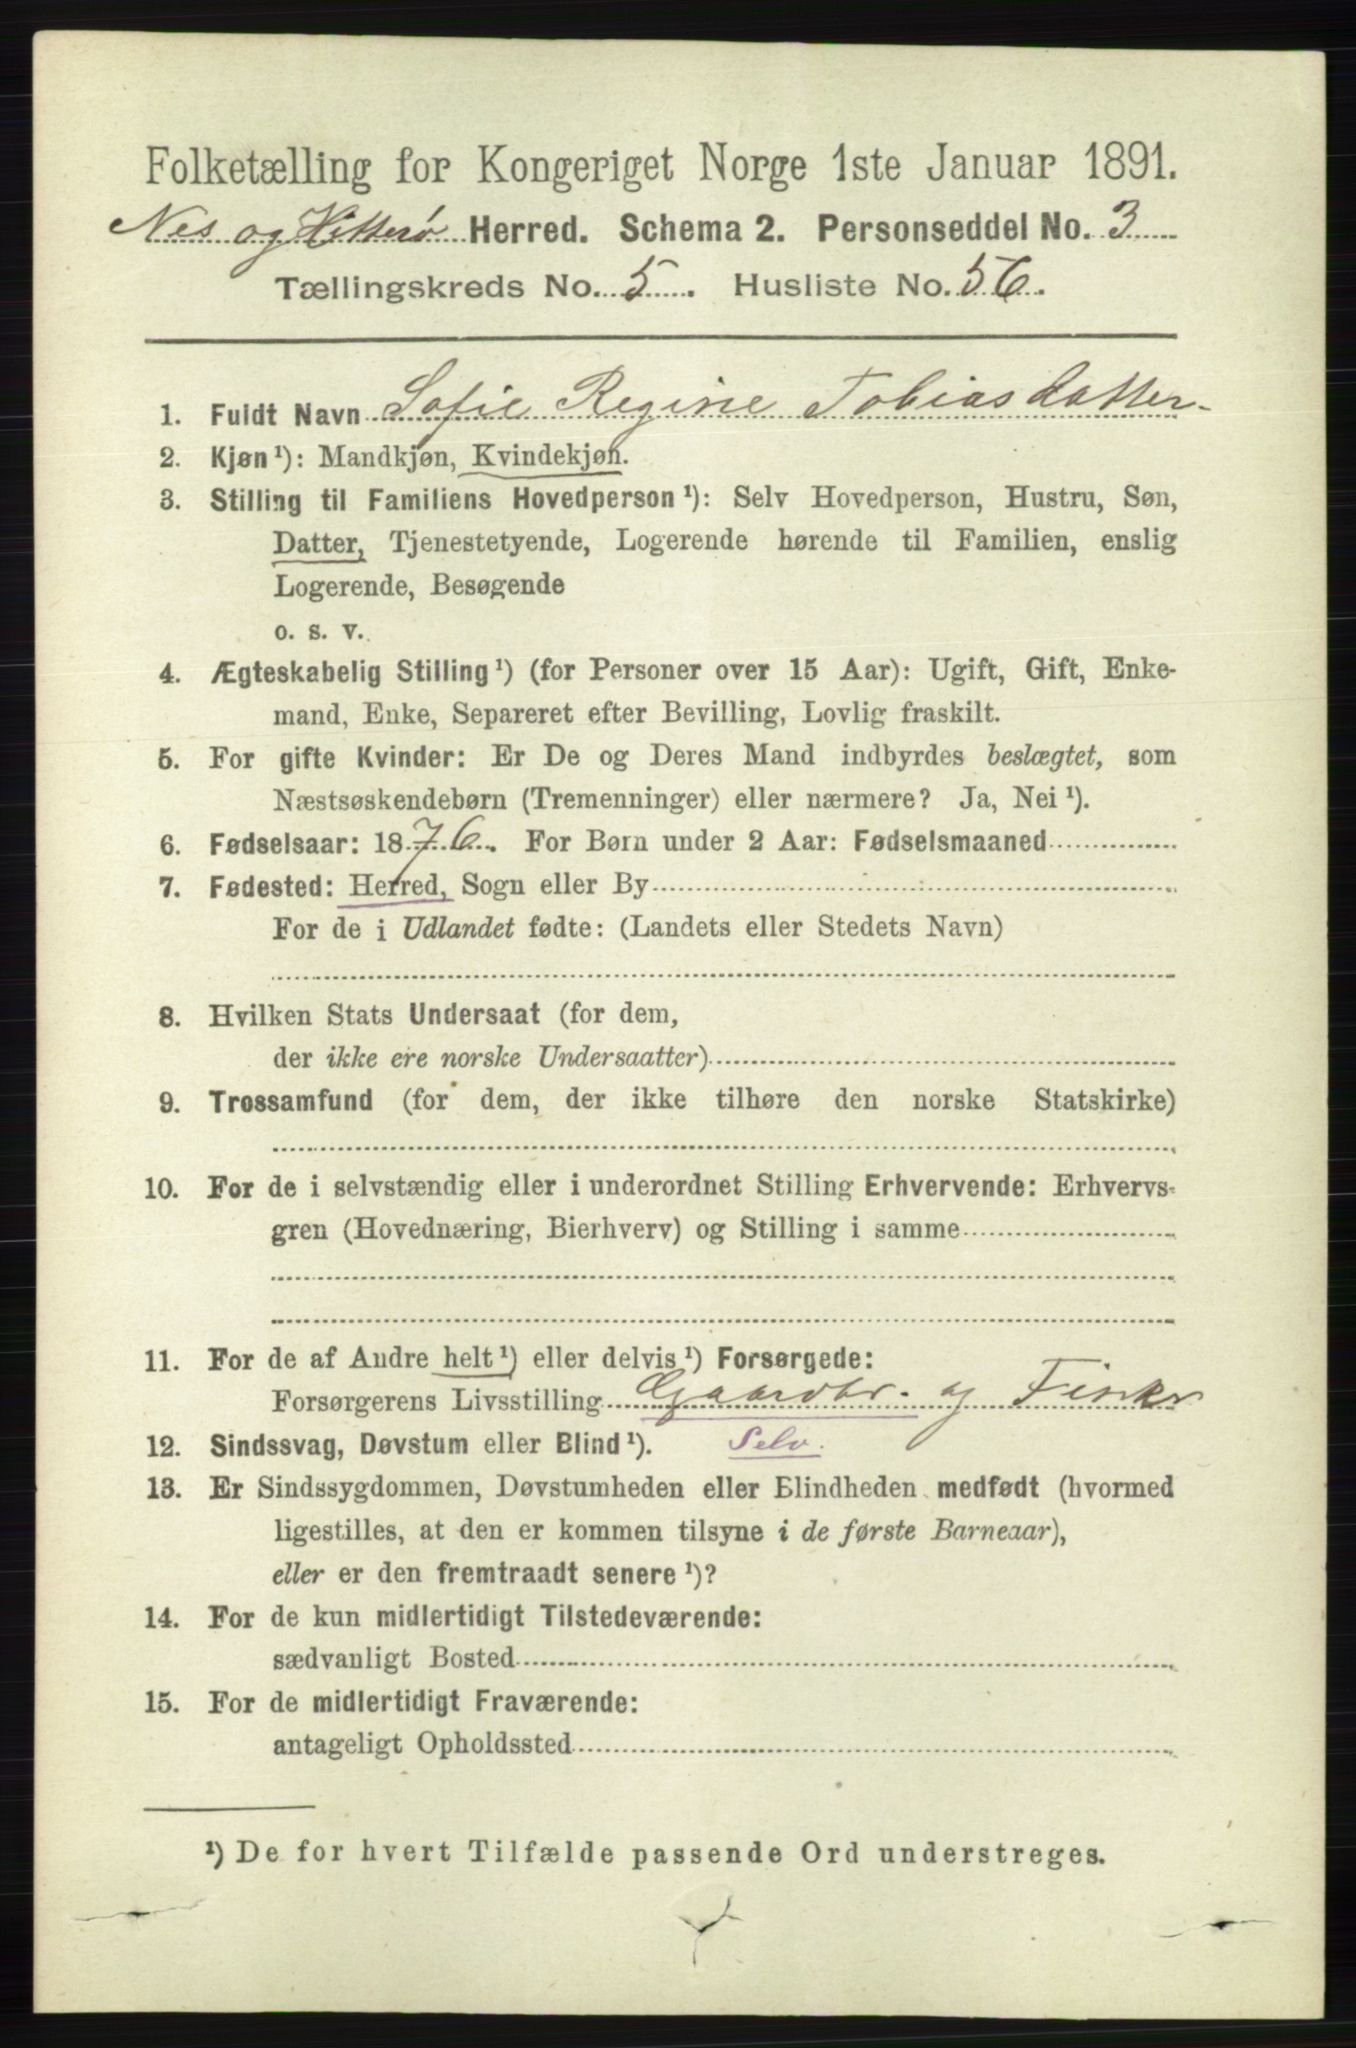 Folketælling for Kongeriget Norge 1ste Januar 1891.
Nes og Hitterø Herred. Schema 2. Personseddel No. 3
Tællingskreds No. 5. Husliste No. 56.
1. Fuldt Navn Sofie Regine Tobiasdatter
2. Kjøn ¹): Mandkjøn, Kvindekjøn.
3. Stilling til Familiens Hovedperson ¹): Selv Hovedperson, Hustru, Søn,
Datter, Tjenestetyende, Logerende hørende til Familien, enslig
Logerende, Besøgende
o. s. v.
4. Ægteskabelig Stilling ¹) (for Personer over 15 Aar): Ugift, Gift, Enke-
mand, Enke, Separeret efter Bevilling, Lovlig fraskilt.
5. For gifte Kvinder: Er De og Deres Mand indbyrdes beslægtet, som
Næstsøskendebørn (Tremenninger) eller nærmere? Ja, Nei ¹).
6. Fødselsaar: 1876. For Børn under 2 Aar: Fødselsmaaned
7. Fødested: Herred, Sogn eller By
For de i Udlandet fødte: (Landets eller Stedets Navn)
8. Hvilken Stats Undersaat (for dem,
der ikke ere norske Undersaatter)
9. Trossamfund (for dem, der ikke tilhøre den norske Statskirke)
10. For de i selvstændig eller i underordnet Stilling Erhvervende: Erhvervs-
gren (Hovednæring, Bierhverv) og Stilling i samme
11. For de af Andre helt ¹) eller delvis ¹) Forsørgede:
Forsørgerens Livsstilling Gaardbr. og Fisker
12. Sindssvag, Døvstum eller Blind ¹). Selv.
13. Er Sindssygdommen, Døvstumheden eller Blindheden medfødt (hvormed
ligestilles, at den er kommen tilsyne i de første Barneaar),
eller er den fremtraadt senere ¹)?
14. For de kun midlertidigt Tilstedeværende:
sædvanligt Bosted
15. For de midlertidigt Fraværende:
antageligt Opholdssted
¹) De for hvert Tilfælde passende Ord understreges.